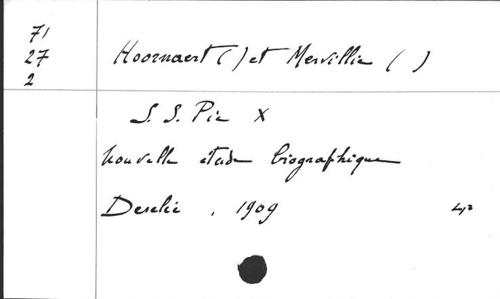 71
27
2
Hoornaert ( ) et Mervillie ( )
S. S. Pie X
Nouvelle étude biographique
Desclée . 1909